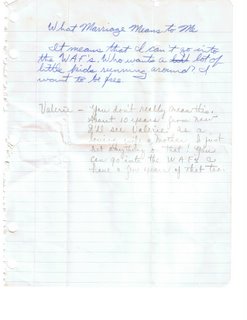 What Marriage Means to Me
It means that I can't go into
the WAF's. Who wants a lot of
little kids running around? I
want to be free
Valerie - You don't really mean this.
About 10 years from now
I'll see Valerie as a
loving wife & mother. I just
bet anything on that! You
can go into the WAFS &
have a few years of that too.